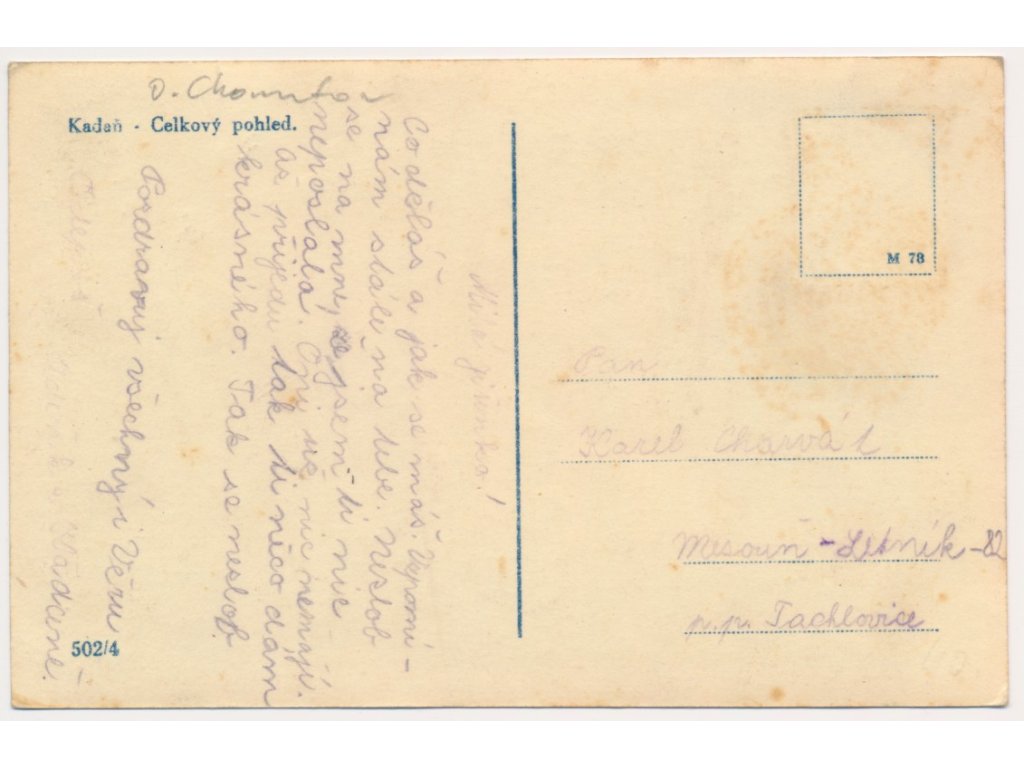 o. Chomutov
Kadaň - Celkový pohled.
Milá
Co děláš a jak se máš. Vzpomí-
nám stále na tebe. Neslob
se na mne, že jsem ti nic
neposlala. Oni už nic nemají.
až přijedu tak ti něco dám
krásného. Tak se neslob
Pozdravuj všechny i Věru
502/4
M 78
Pan
Karel Charvát
Mesoun-Letník-82
p.p. Tachlovice